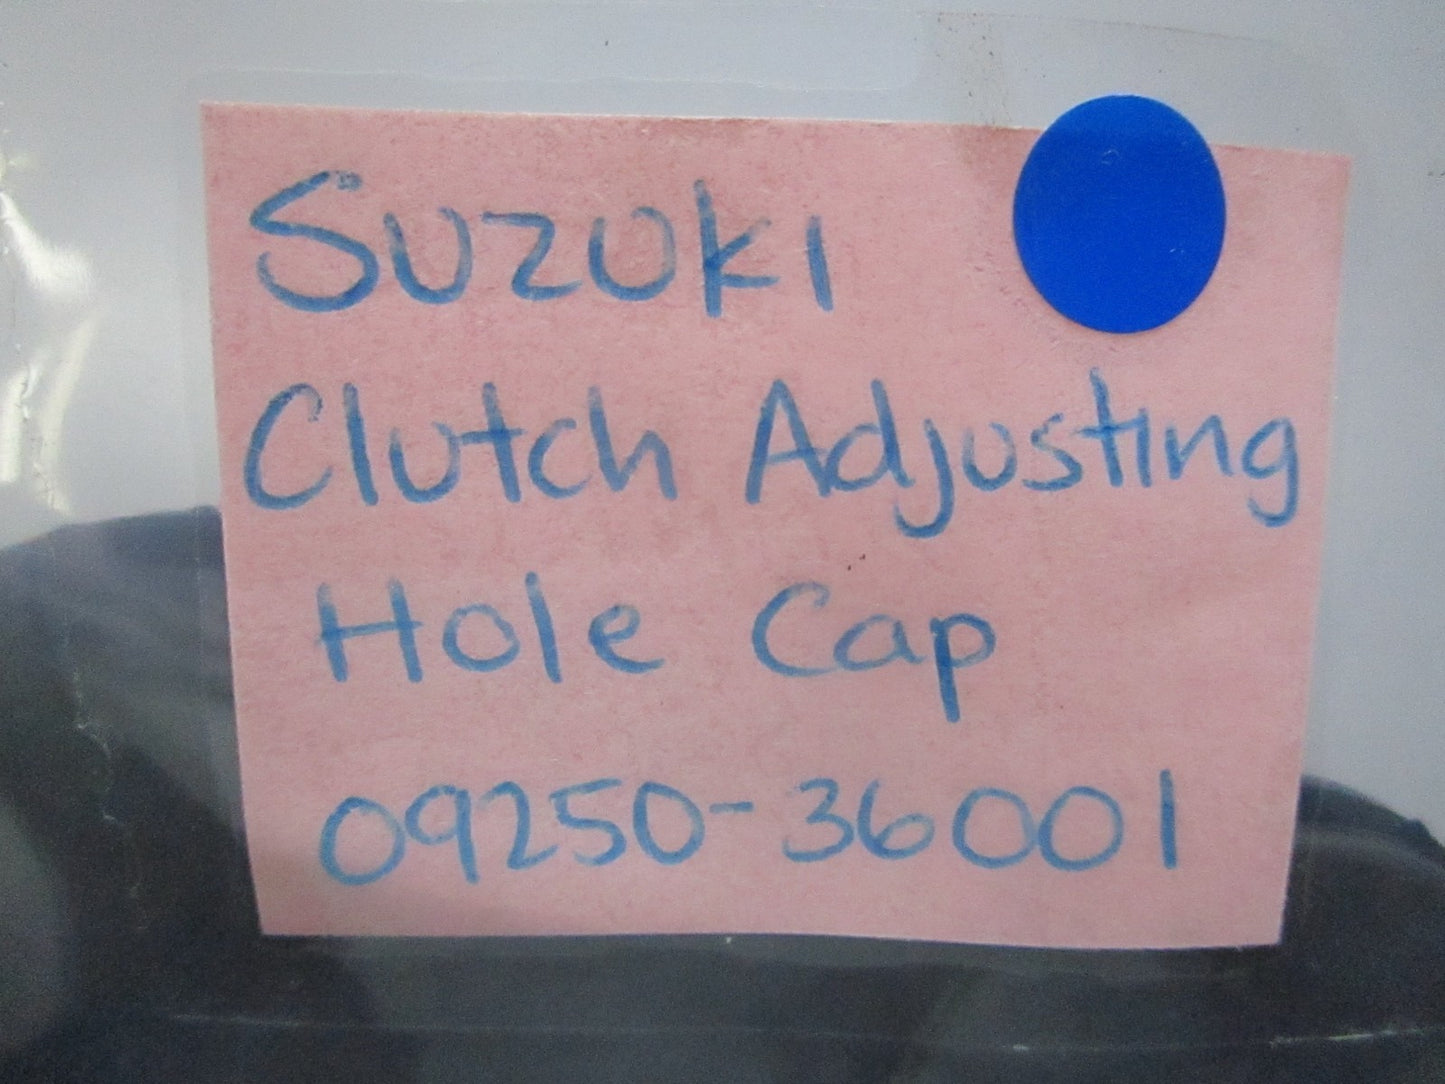 Suzuki
Clutch Adjusting
Hole Cap
09250-36001